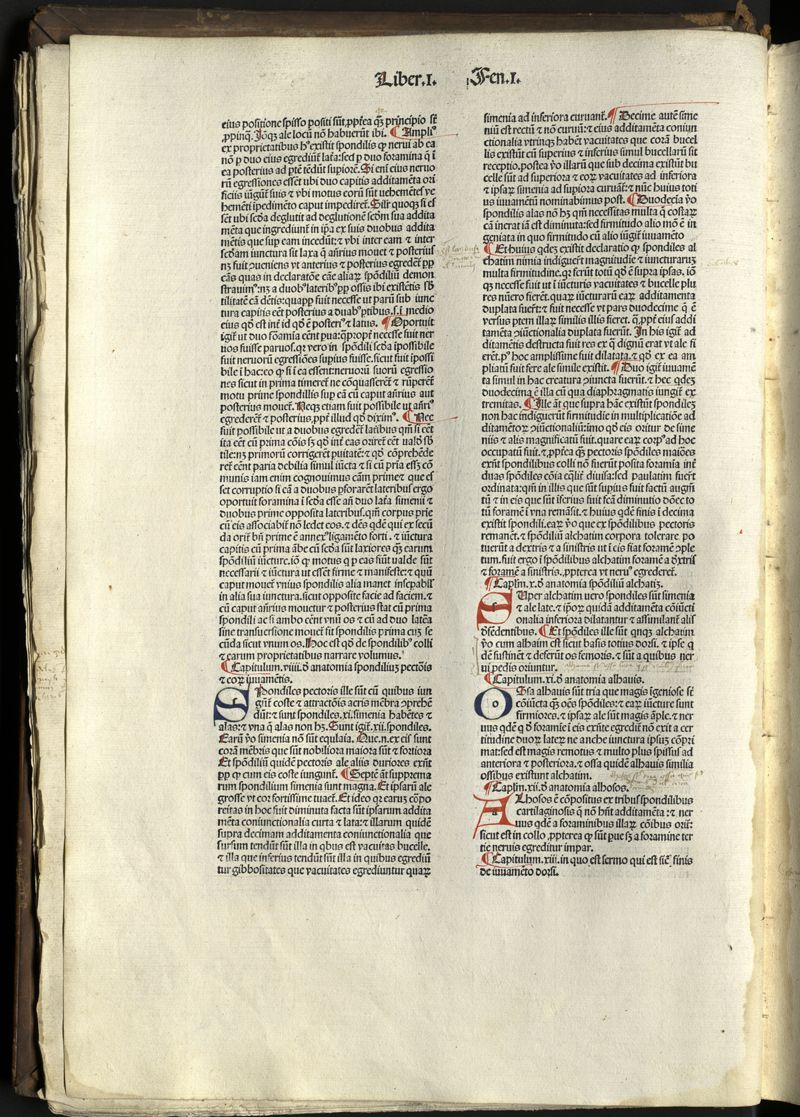 Liber.I. Fen.I.
eius positione spisso positi sūt, ꝓptea qꝫ principio st̄
ꝓpinq̄. Jōqꝫ ale locū nō habuerūt ibi. ¶ Ampliꝰ
ex proprietatibus hꝰ existit spondilis ꝙ nerui ab ea
nō ꝑ duo eius egrediūt̄ lat̄a: sed ꝑ duo foramina q̄ ī
ea posterius ad pt̄e tēdūt supiorē. Si em̄ eius neruo
rū egressiones essēt vbi duo capitis additamēta ori
ficiis iūgūt̄ suis ⁊ vbi motus eorū sūt vehemētes ve
hemēti īpedimēto caput impediret̄. Sil̄r quoqꝫ si es
sēt ubi scd̄a deglutit ad deglutionē scd̄m sua addita
mēta que ingrediunt̄ in ip̄a ex suis duobus addita
mētis que sup eam incedūt: ⁊ vbi inter eam ⁊ inter
scd̄am iunctura sit laxa q̄ ān̄rius mouet̄ ⁊ posterius
nꝫ fuit ꝯueniens vt anterius ⁊ posterius egrederēt̄ pp
cās quas in declaratōe cāe aliaꝝ spōdiliū demon
strauimꝰ: nꝫ a duobꝰ lateribꝰ pp ossis ibi existētis sb
tilitatē cā dētis: quapp fuit necesse ut parū sub iunc
tura capitis eēt posterius a duabꝰ ptibus. s. ī medio
eius qd̄ est int̄ id qd̄ ē posteriꝰ ⁊ latus. ¶ Oportuit
igit̄ ut duo fōamia eēnt pua: qꝓpt̄ necesse fuit ner
uos fuisse paruos. qꝛ vero in spōdili scd̄a īpossibile
fuit neruorū egressiōes supius fuisse. sicut fuit īpossi
bile ī hac: eo ꝙ si ī ea essent neruorū suorū egressio
nes sicut in prima timeret̄ ne cōquasserēt̄ ⁊ rūperēt̄
motu prime spondilis sup eā cū caput ān̄rius aut
posterius mouet̄. Neqꝫ etiam fuit possibile ut ān̄rꝰ
egrederēt̄ ⁊ posterius, ppt̄ illud qd̄ diximꝰ. ¶ Nec
fuit possibile ut a duobus egrederēt̄ lat̄ibus qm̄ si eēt
ita eēt cū prima cōis sꝫ qd̄ int̄ eas oriret̄ eēt ualde sb
tile: nꝫ primorū corrigerēt̄ puitatē: ⁊ qd̄ cōprehēde
ret̄ eēnt paria debilia simul iūcta ⁊ si cū pria essꝫ cō
munis iam enim cognouimus cām prime ⁊ que es
set corruptio si eā a duobus ꝑforaret̄ lateribus: ergo
oportuit foramina ī scd̄a esse ān̄ duo lat̄a simenii ⁊
duobus prime opposita lateribus. qm̄ corpus prie
cū eis associabit̄ nō ledet eos. ⁊ dēs qd̄e qui ex secū
da orit̄ bn̄ prime ē ānexꝰ ligamēto forti. ⁊ iūctura
capitis cū prima ābe cū scd̄a sūt laxiores qꝫ earum
spōdiliū iūcture. iō ꝙ motus q̄ ꝑ eas fiūt ualde sūt
necessarii ⁊ iūctura ut essēt firme ⁊ manifeste: ⁊ quū
caput mouet̄ vnius spondilis alia manet īsepabil̄
in alia sua iunctura. sicut opposite facie ad faciem. ⁊
cū caput ān̄rius mouetur ⁊ posterius stat cū prima
spondili ac si ambo eēnt vnū os ⁊ cū ad duo latēa
sine transuersione mouet̄ sit spondilis prima cuꝫ se
cūda sicut vnum os. Hoc est qd̄ de spondilibꝰ colli
⁊ earum proprietatibus narrare volumus.
¶ Capitulum. viiii. d̄ anatomia spondiliuꝫ pectōis
⁊ eoꝝ iuuamētis.
Spondiles pectoris ille sūt cū quibus iun
gūt̄ coste ⁊ attractōis aeris mēbra ꝯprehē
dūt: ⁊ sunt spondiles. xi. simenia habētes ⁊
alas: ⁊ vna q̄ alas non hꝫ. Sunt igit̄. xii. spondiles.
Earū ꝟo simenia nō sūt equalia. Que. n. ex eis sunt
corā mēbris que sūt nobiliora maiora sūt ⁊ fortiora
Et spōdiles quidē pectoris ale aliis duriores exn̄t
pp ꝙ cum eis coste iungunt̄. ¶ Septē āt suprema
rum spondilium simenia sunt magna. Et ipsarū ale
grosse vt cor fortissime tuaēt̄. Et ideo qꝛ earus cōpo
reitas in hoc fuit diminuta facta sūt ipsarum addita
mēta coniunctionalia curta ⁊ lata: ⁊ illarum quidē
supra decimam additamenta coniunctionalia que
sursum tendūt sūt illa in qbus est vacuitas bucelle.
⁊ illa que inferius tendūt sūt illa in quibus egrediū
tur gibbositates que vacuitates egrediuntur quaꝝ
simenia ad inferiora curuant̄. ¶ Decime autē sime
niū est rectū ⁊ nō curuū: ⁊ eius additamēta coniun
ctionalia vtrinqꝫ habēt vacuitates que corā bucel
lis existūt cū superius ⁊ inferius simul bucellarū sit
receptio. postea ꝟo illarū que sub decima existūt bu
celle sūt ad superiora ⁊ eoꝝ vacuitates ad inferiora
⁊ ipsaꝝ simenia ad supiora curuāt̄: ⁊ nūc huius toti
us iuuamētū nominabimus post. ¶ Duodecīa ꝟo
spondilis alas nō hꝫ qm̄ necessitas multa q̄ costaꝝ
cā īnerat iā est diminuta: sed firmitudo alio mō ē in
geniata in quo firmitudo cū alio iūgit̄ iuuamēto
¶ Et huius qd̄eꝫ existit declaratio ꝙ spondiles al
chatim nimia indiguerūt̄ magnitudie ⁊ iuncturaruꝫ
multa firmitudine. qꝛ ferūt totū qd̄ ē supra ipsas. iō
qꝫ necesse fuit ut ī iūcturis vacuitates ⁊ bucelle plu
res nūero fierēt. quaꝝ iūcturarū eaꝝ additamenta
duplata fuerūt: ⁊ fuit necesse vt pars duodecime q̄ ē
versus ptem illaꝝ similis illis fieret. q̄, ppt̄ eius addi
tamēta ꝯiūctionalia duplata fuerūt. In his igit̄ ad
ditamētis destructa fuit res ex q̄ dignū erat vt ale fi
erēt. pꝰ hoc amplissime fuit dilatata. ⁊ qd̄ ex ea am
pliatū fuit fere ale simile existit. ¶ Duo igit̄ iuuamē
ta simul in hac creatura ꝯiuncta fuerūt. ⁊ hec qd̄eꝫ
duodecima ē illa cū qua diaphragmatis iungit̄ ex
tremitas. ¶ Ille āt que supra hāc existūt spondiles
non hac indiguerūt firmitudie in multiplicatiōe ad
ditamētoꝝ ꝯiūctionaliū: imo qd̄ ex eis oritur de sime
niis ⁊ alis magnificatū fuit. quare eaꝝ corpꝰ ad hoc
occupatū fuit. ⁊, ꝓptea qꝫ pectoris spondiles maiōes
exn̄t spondilibus colli nō fuerūt posita foramia int̄
duas spondiles cōia eq̄lit̄ diuisa: sed paulatim fuerūt
ordinata: qm̄ in illis que sūt supius fuit factū augm̄
tū ⁊ in eis que sūt īferius fuit fc̄m diminutio donec to
tū foramē ī vna remāsit. ⁊ huius qd̄e finis ī decima
existit spondili. eaꝝ ꝟo que ex spōdilibus pectoris
remanēt. ⁊ spōdiliū alchatim corpora tolerare po
tuerūt a dextris ⁊ a sinistris ut ī eis fiat foramē ꝯple
tum. fuit ergo ī spōdilibus alchatim foramē a dextris
⁊ foramē a sinistris. ꝓpterea vt neruꝰ egrederet̄.
¶ Caplm̄. x. d̄ anatomia spōdiliū alchatiꝫ.
Super alchatim uero spondiles sūt simenia
⁊ ale late. ⁊ ip̄oꝝ quidā additamēta cōiūcti
onalia inferiora dilatantur ⁊ assimilant̄ alis
d̄fēdentibus. ¶ Et spōdiles ille sūt qnqꝫ alchatim
ꝟo cum alhatim est sicut basis totius dorsi. ⁊ ipse q
dē sustinēt ⁊ deferūt os femoris. ⁊ sūt a quibus ner
ui pedis oriuntur.
¶ Capitulum. xi. d̄ anatomia alhauis.
Ossa alhauis sūt tria que magis īgeniose st̄
cōiūcta qꝫ oēs spōdiles: ⁊ eaꝝ iūcture sunt
firmiores. ⁊ ipsaꝝ ale sūt magis āple. ⁊ ner
uus qd̄e q̄ d̄ foramie ī eis exn̄te egredit̄ nō exit a cer
titudine duoꝝ lateꝝ ne anche iunctura ipsuꝫ cōpri
mat: sed est magis remotus ⁊ multo plus spissus ad
anteriora ⁊ posteriora. ⁊ ossa quidē alhauis similia
ossibus existunt alchatim.
¶ Caplm̄. xii. d̄ anatomia alhosos.
Alhosos ē cōpositus ex tribus spondilibus
cartilaginosis q̄ nō hn̄t additamēta: ⁊ ner
uus qd̄e a foraminibus illaꝝ cōibus orit̄:
sicut est in collo, ꝓpterea ꝙ sūt pue sꝫ a foramine ter
tie neruis egreditur impar.
¶ Capitulum. xiii. in quo est sermo qui est sic̄ finis
de iuuamēto dorsi.